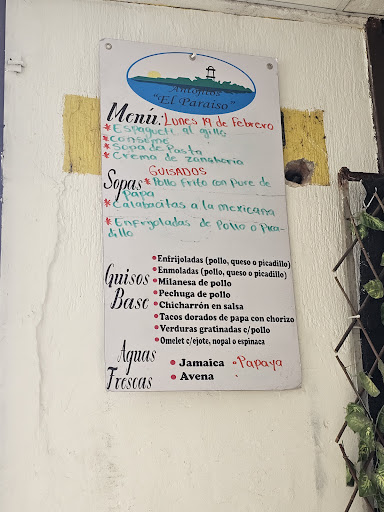 Antojitos
"El Paraiso"
Menú: Lunes 19 de Febrero
* Espagueti al gillo
* consome
* Sopa de Pasta
* Crema de zanahoria
GUISADOS
Sopas * Pollo Frito con Pure de
Papa
* Calabacitas a la mexicana
* Enfrijoladas de Pollo o Pica-
dillo
Guisos
Base
• Enfrijoladas (pollo, queso o picadillo)
• Enmoladas (pollo, queso o picadillo)
• Milanesa de pollo
• Pechuga de pollo
• Chicharrón en salsa
• Tacos dorados de papa con chorizo
• Verduras gratinadas c/pollo
• Omelet c/ejote, nopal o espinaca
Aguas
Frescas
• Jamaica • Papaya
• Avena